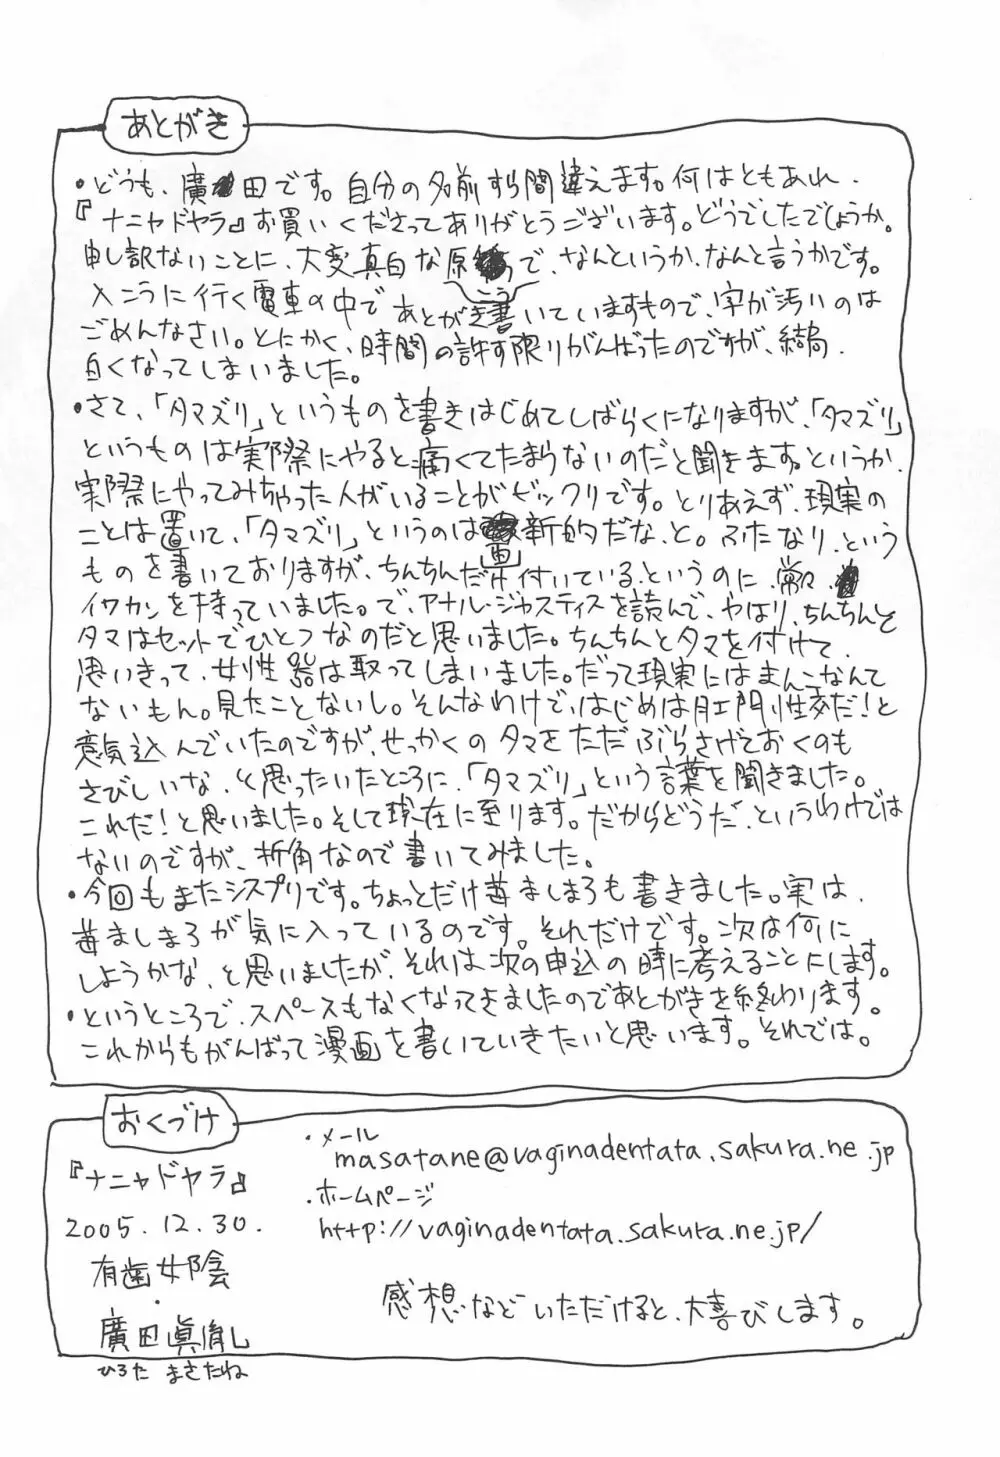 あとがき
・どうも、廣田です。自分の名前すら間違えます。何はともあれ、
『ナニャドヤラ』お買いくださってありがとうございます。どうでしたでしょうか。
申し訳ないことに、大変真白な原で、なんというか、なんと言うかです。
入こうに行く電車の中であとがき書いていますもので、字が汚いのは
ごめんなさい。とにかく、時間の許す限りがんばったのですが、結局、
白くなってしまいました。
・さて、「タマズリ」というものを書きはじめてしばらくになりますが、「タマズリ」
というものは実際にやると痛くてたまらないのだと聞きます。というか、
実際にやってみちゃった人がいることがビックリです。とりあえず、現実の
ことは置いて、「タマズリ」というのは画新的だな、と。ふたなり、という
ものを書いておりますが、ちんちんだけ付いている、というのに、常々
イワカンを持っていました。で、アナル・ジャスティスを読んで、やはり、ちんちんと
タマはセットでひとつなのだと思いました。ちんちんとタマを付けて、
思いきって、女性器は取ってしまいました。だって現実にはまんこなんて
ないもん。見たことないし。そんなわけで、はじめは肛門性交だ!と
意気込んでいたのですが、せっかくのタマをただぶらさげておくのも
さびしいな、と思ったいたところに、「タマズリ」という言葉を聞きました。
これだ!と思いました。そして現在に至ります。だからどうだ、というわけでは
ないのですが、折角なので書いてみました。
・今回もまたシスプリです。ちょっとだけ苺ましまろも書きました。実は、
苺ましまろが気に入っているのです。それだけです。次は何に
しようかな、と思いましたが、それは次の申込の時に考えることにします。
・というところで、スペースもなくなってきましたのであとがきを終わります。
これからもがんばって漫画を書いていきたいと思います。それでは。
おくづけ
『ナニャドヤラ』
2005.12.30.
有歯女陰
・
廣田眞胤
ひろた まさたね
・メール
masatane@vaginadentata.sakura.ne.jp
・ホームページ
http://vaginadentata.sakura.ne.jp/
感想などいただけると、大喜びします。